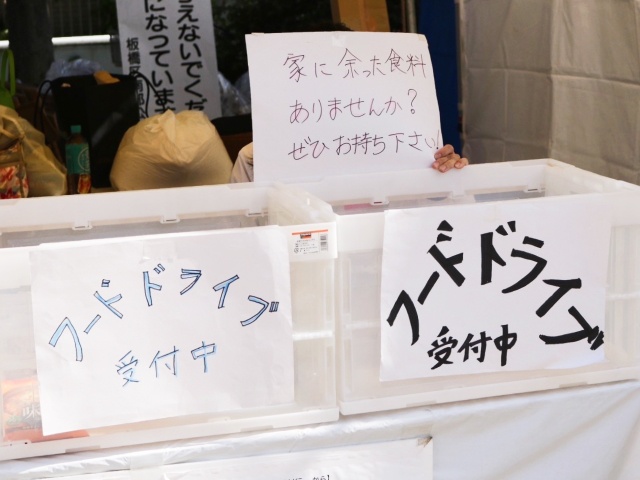 えないでくだ
になっていま
板橋
家に余った食料
ありませんか？
ぜひお持ち下さい！
フードドライブ
受付中
フードドライブ
受付中